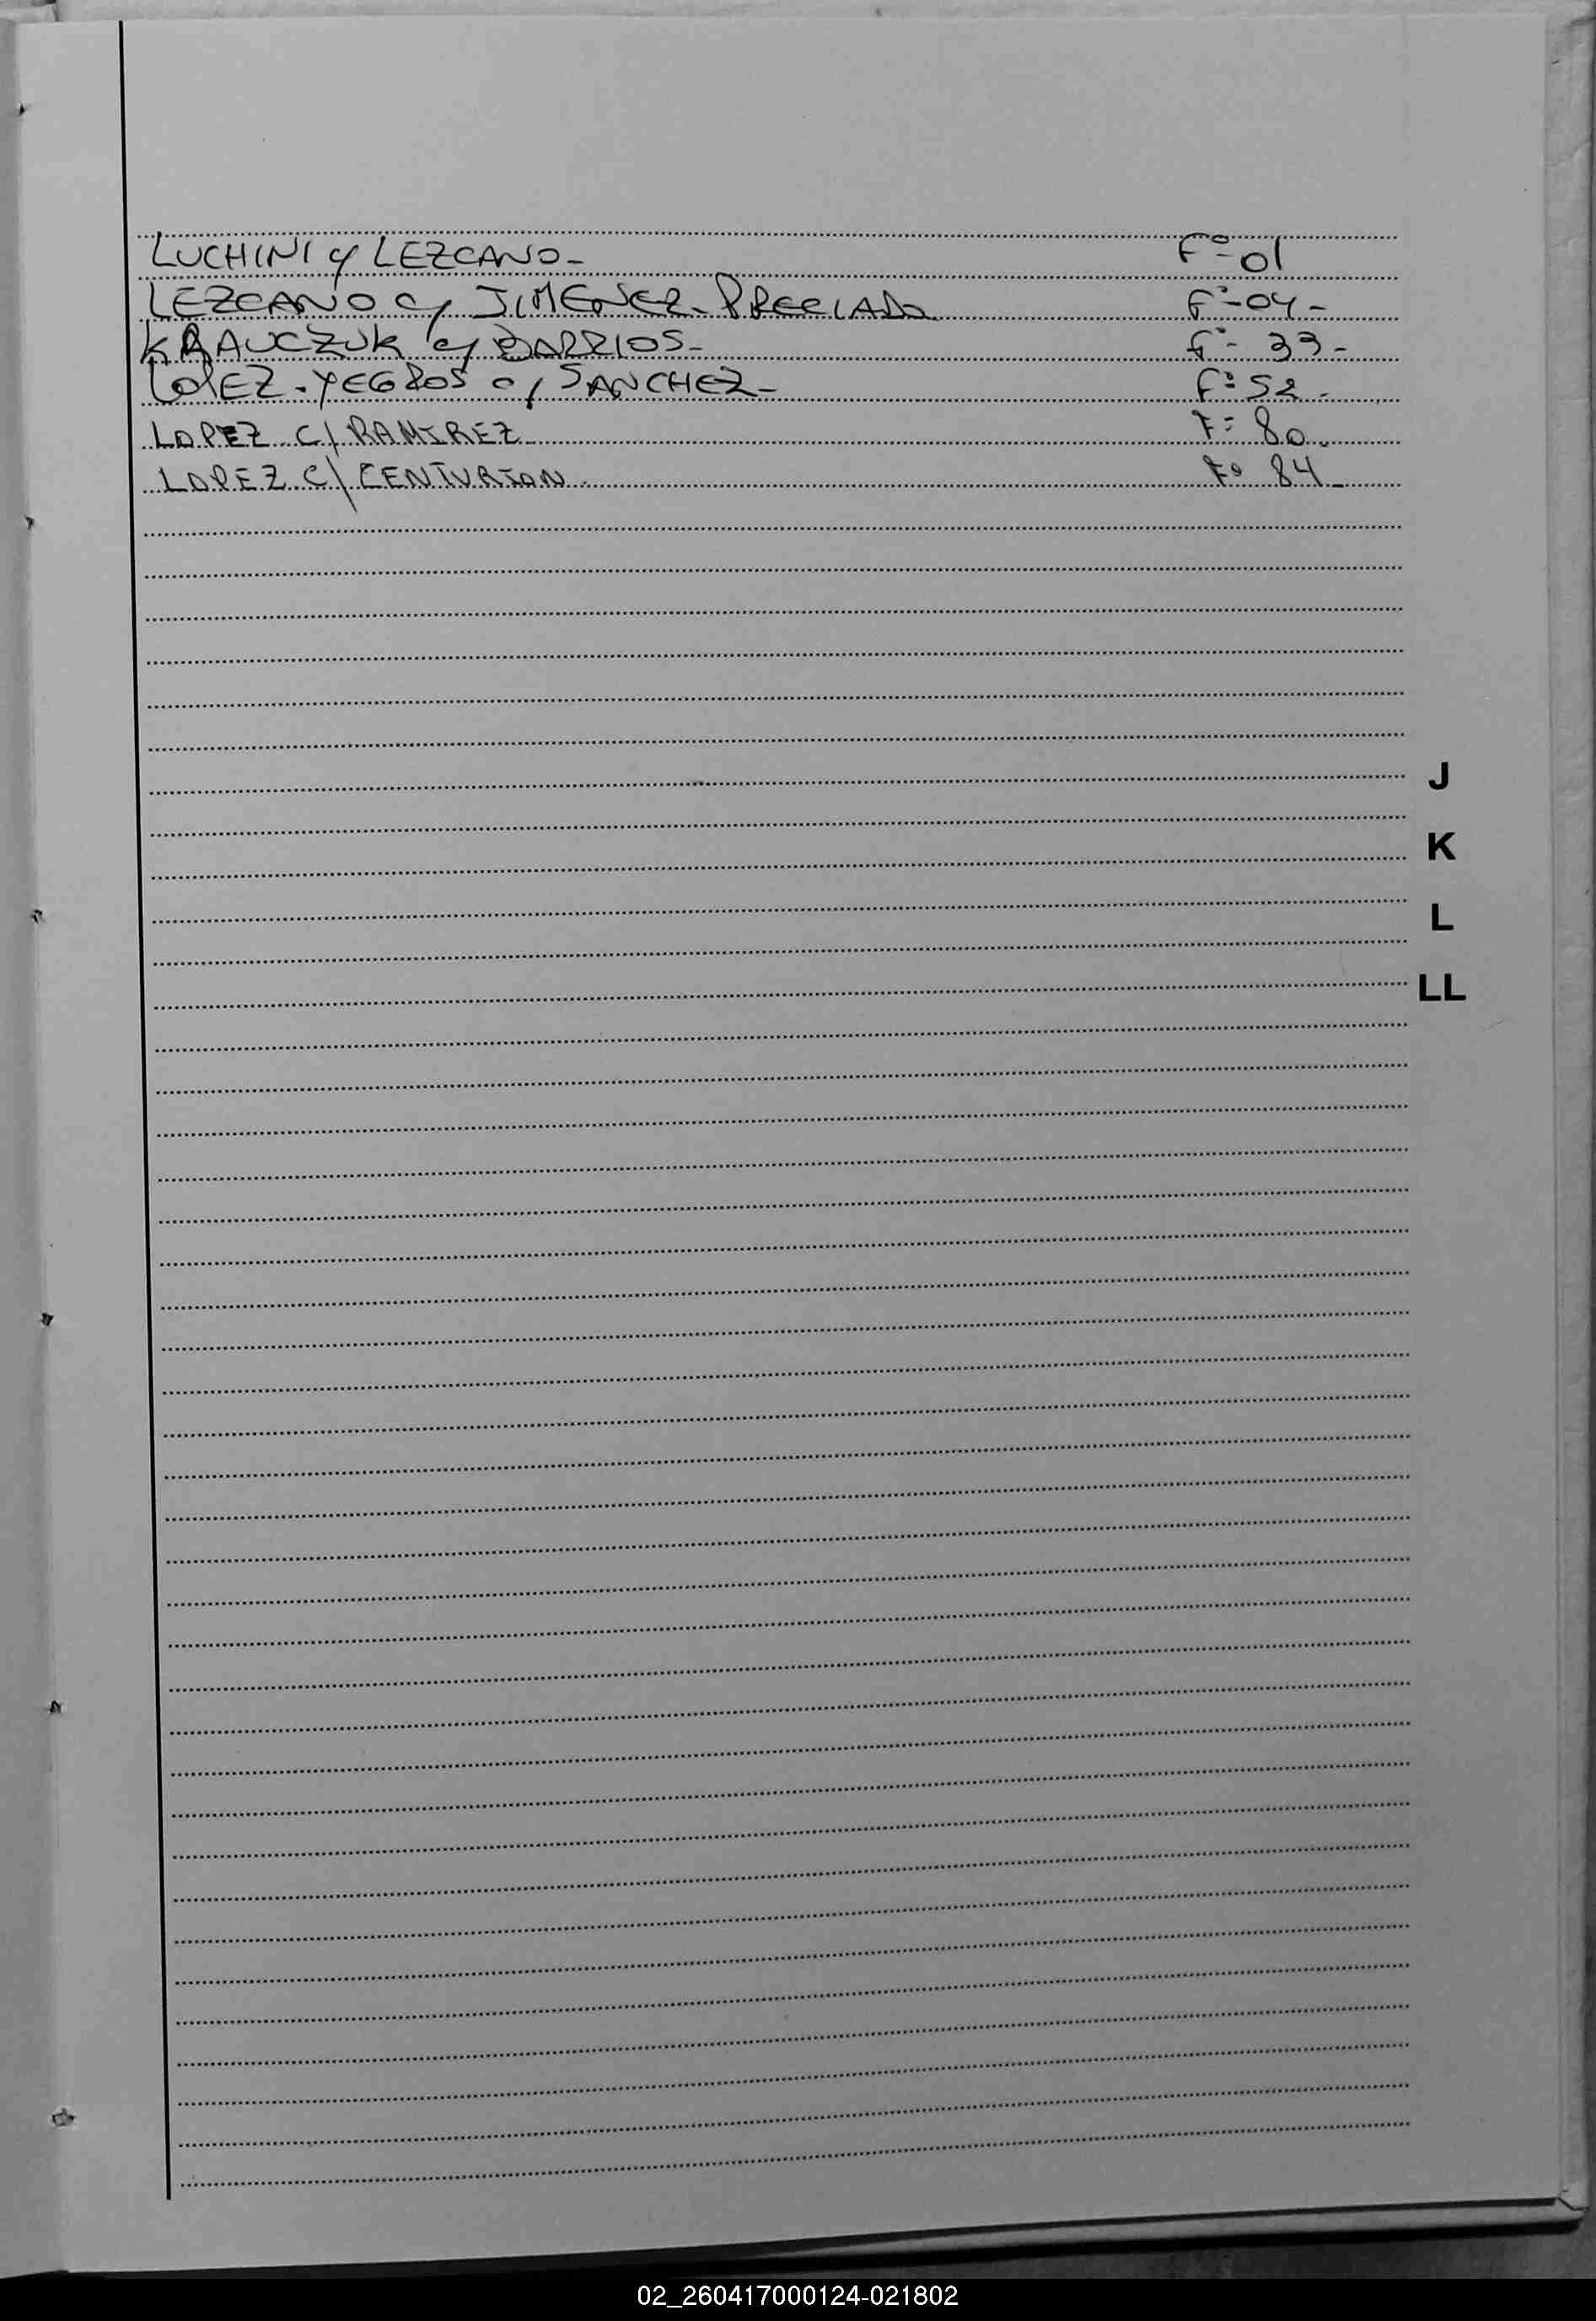 LUCHINI c/ LEZCANO- Fº-01
LEZCANO c/ JIMENEZ-PRECIADO Fº-04-
KRAUCZUK c/ BARRIOS- Fº- 33-
LOPEZ-YEGROS c/ SANCHEZ- Fº 52-
LOPEZ C/ RAMIREZ Fº 80-
LOPEZ C/ CENTURION Fº 84-
J
K
L
LL
02_260417000124-021802